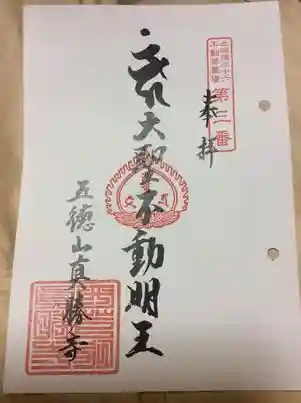 北海道三十六
不動尊霊場
第三番
奉拝
大聖不動明王
五徳山真勝寺